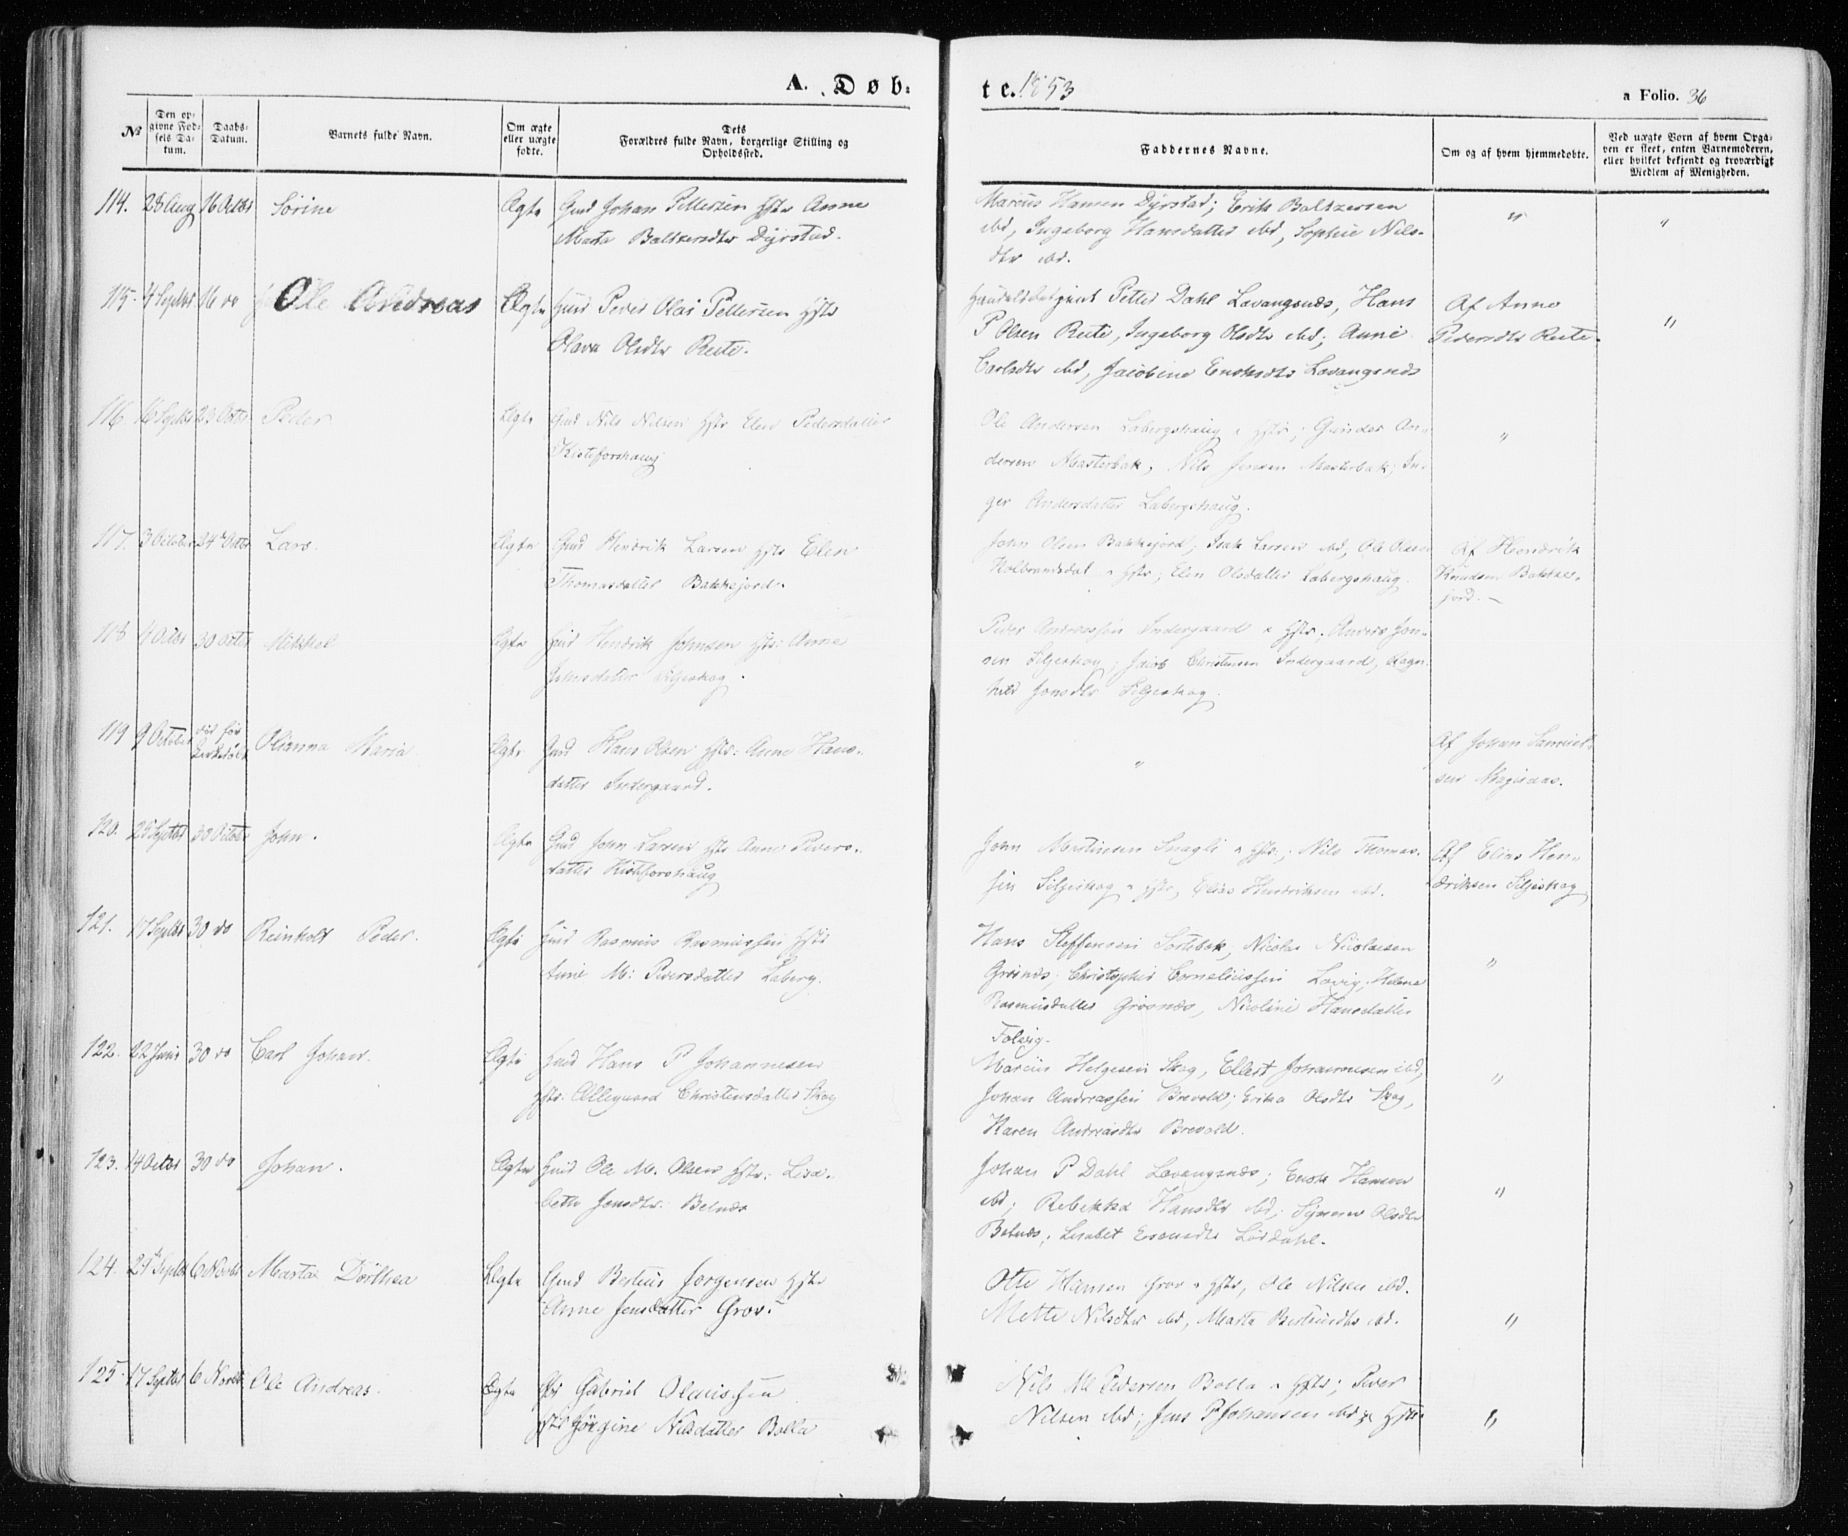 A. Døb:
te. 1853
a Folio. 36
No
Den op-
givne Fød-
sels Da-
tum.
Daabs-
Datum.
Barnets fulde Navn.
Om ægte
eller uægte
fødte.
Dets
Forældres fulde Navn, borgerlige Stilling og
Opholdssted.
Faddernes Navne.
Om og af hvem hjemmedøbte.
Ved uægte Børn af hvem Opga-
ven er skeet, enten Barnemoderen,
eller hvilket bekjendt og troværdigt
Medlem af Menigheden.
114. 28 Aug 16 Octbr Sørine Ægte Gmd Johan Pettersen Hstr Anne
Marta Baltzersdtr Dyrstad.
Marcus Hansen Dyrstad; Erik Baltzersen
ibd, Ingeborg Hansdatter ibd, Sophie Nils-
dtr ibd.
" "
115. 4 Septbr 16 do Ole Andreas Ægte Hmd Peder Olai Pettersen Hstr
Olava Olsdtr Reite.
Petter Dahl Lavangsnæs, Hans
P Olsen Reite, Ingeborg Olsdtr ibd, Anne
Carlsdtr ibd, Jacobine Enoksdtr Lavangsnæs
Af Anne
Pedersdtr Reite.
"
116. 16 Septbr 23 Octbr Peder Ægte Gmd Nils Nilsen Hstr Elen Pedersdatter
Kristoforshaug
Ole Andersen Labergshaug & Hstr; Gunder An-
dersen Mæsterbak; Nils Jensen Mæsterbak; In-
ger Andersdatter Labergshaug.
"
117. 3 October 24 Octbr Lars. Ægte Gmd Hendrik Larsen Hstr Elen
Thomasdatter Bakkejord.
John Olsen Bakkejord; Isak Larsen ibd, Ole Olsen
& Hstr; Elen Olsdatter Labergshaug.
Af Hendrik
Knudsen Bakke-
jord.
118 4 Octbr 30 Octbr Mikkel Ægte Hmd Hendrik Johnsen Hstr: Anne
Jonsdatter Siljeskog.
Peder Andreassen Indergaard & Hstr; Anders Jon-
sen Siljeskog; Jacob Christensen Indergaard, Ragn-
hild Jonsdtr Siljeskog.
119 9 October død før
Olianna Maria Ægte Gmd Hans Olsen Hstr: Anne Hans-
datter Indergaard.
"
Af Johan Samuel-
sen
120. 25 Septbr 30 October John. Ægte Gmd John Larsen Hstr Anne Peders-
datter Kistforshaug
John Mortinsen & Hstr; Nils Thomas-
sen Siljeskog & Hstr, Elias Hendriksen ibd.
Af Elias Hen-
driksen Siljeskog
121. 17 Septbr 30 do Reinholt Peder. Ægte Hmd Rasmus Rasmussen Hstr
Anne M: Pedersdatter Laberg.
Hans Steffensen Sortebak, Nicolai Nicolaisen
Grøsnæs; Christopher Corneliussen Løvig, Helena
Rasmusdatter Grøsnæs, Nicoline Hansdatter
Følvig.
"
122. 22 Juni 30 do Carl Johan. Ægte Hmd Hans P Johannesen
Hstr: Allegaard Christensdatter Skog
Marius Helgesen Skog, Ellert Johannesen ibd,
Johan Andreassen Brevold; Erika Olsdtr Skog,
Karen Andreasdtr Brevold.
"
123. 14 Octbr 30 do Johan. Ægte Hmd Ole M. Olsen Hstr: Lisa-
beth Jonsdtr: Belnæs
Johan P Dahl Lavangsnæs; Enok Hansen
ibd; Rebekka Hansdtr ibd; Olsdtr
Belnæs; Lisabet Lørdahl.
"
124. 24 Septbr 6 Novbr Marta Dorthea Ægte Gmd Bertius Jørgensen Hstr
Anne Jensdatter Grov.
Otte Hansen Grov & Hstr, Ole Nilsen ibd.
Mette Nilsdtr ibd, Marta ibd.
"
125. 17 Septbr 6 Novbr Ole Andreas. Ægte Gabriel Olaussen
Hstr Jørgine Nilsdatter Bolla
Nils M Pedersen Bolla & Hstr; Peder
Nilsen ibd; Jens P Johansen ibd & Hstr
"